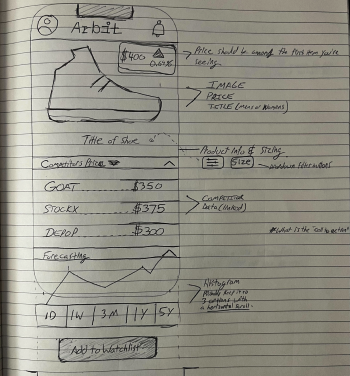 Arbit
$400
Price should be among the first item you're
seeing
IMAGE
PRICE
TITLE (Mens or Womens)
Title of Shoe
Product Info & Sizing
Size
Competitors Price
GOAT $350
STOCKX $375
DEPOP $300
COMPETITOR
Data (listed)
#What is the "call to action"
Forecasting
Histogram
Mainly keep it to
3 options with
a horizontal scroll.
1D 1W 3M 1Y 5Y
Add to Watchlist